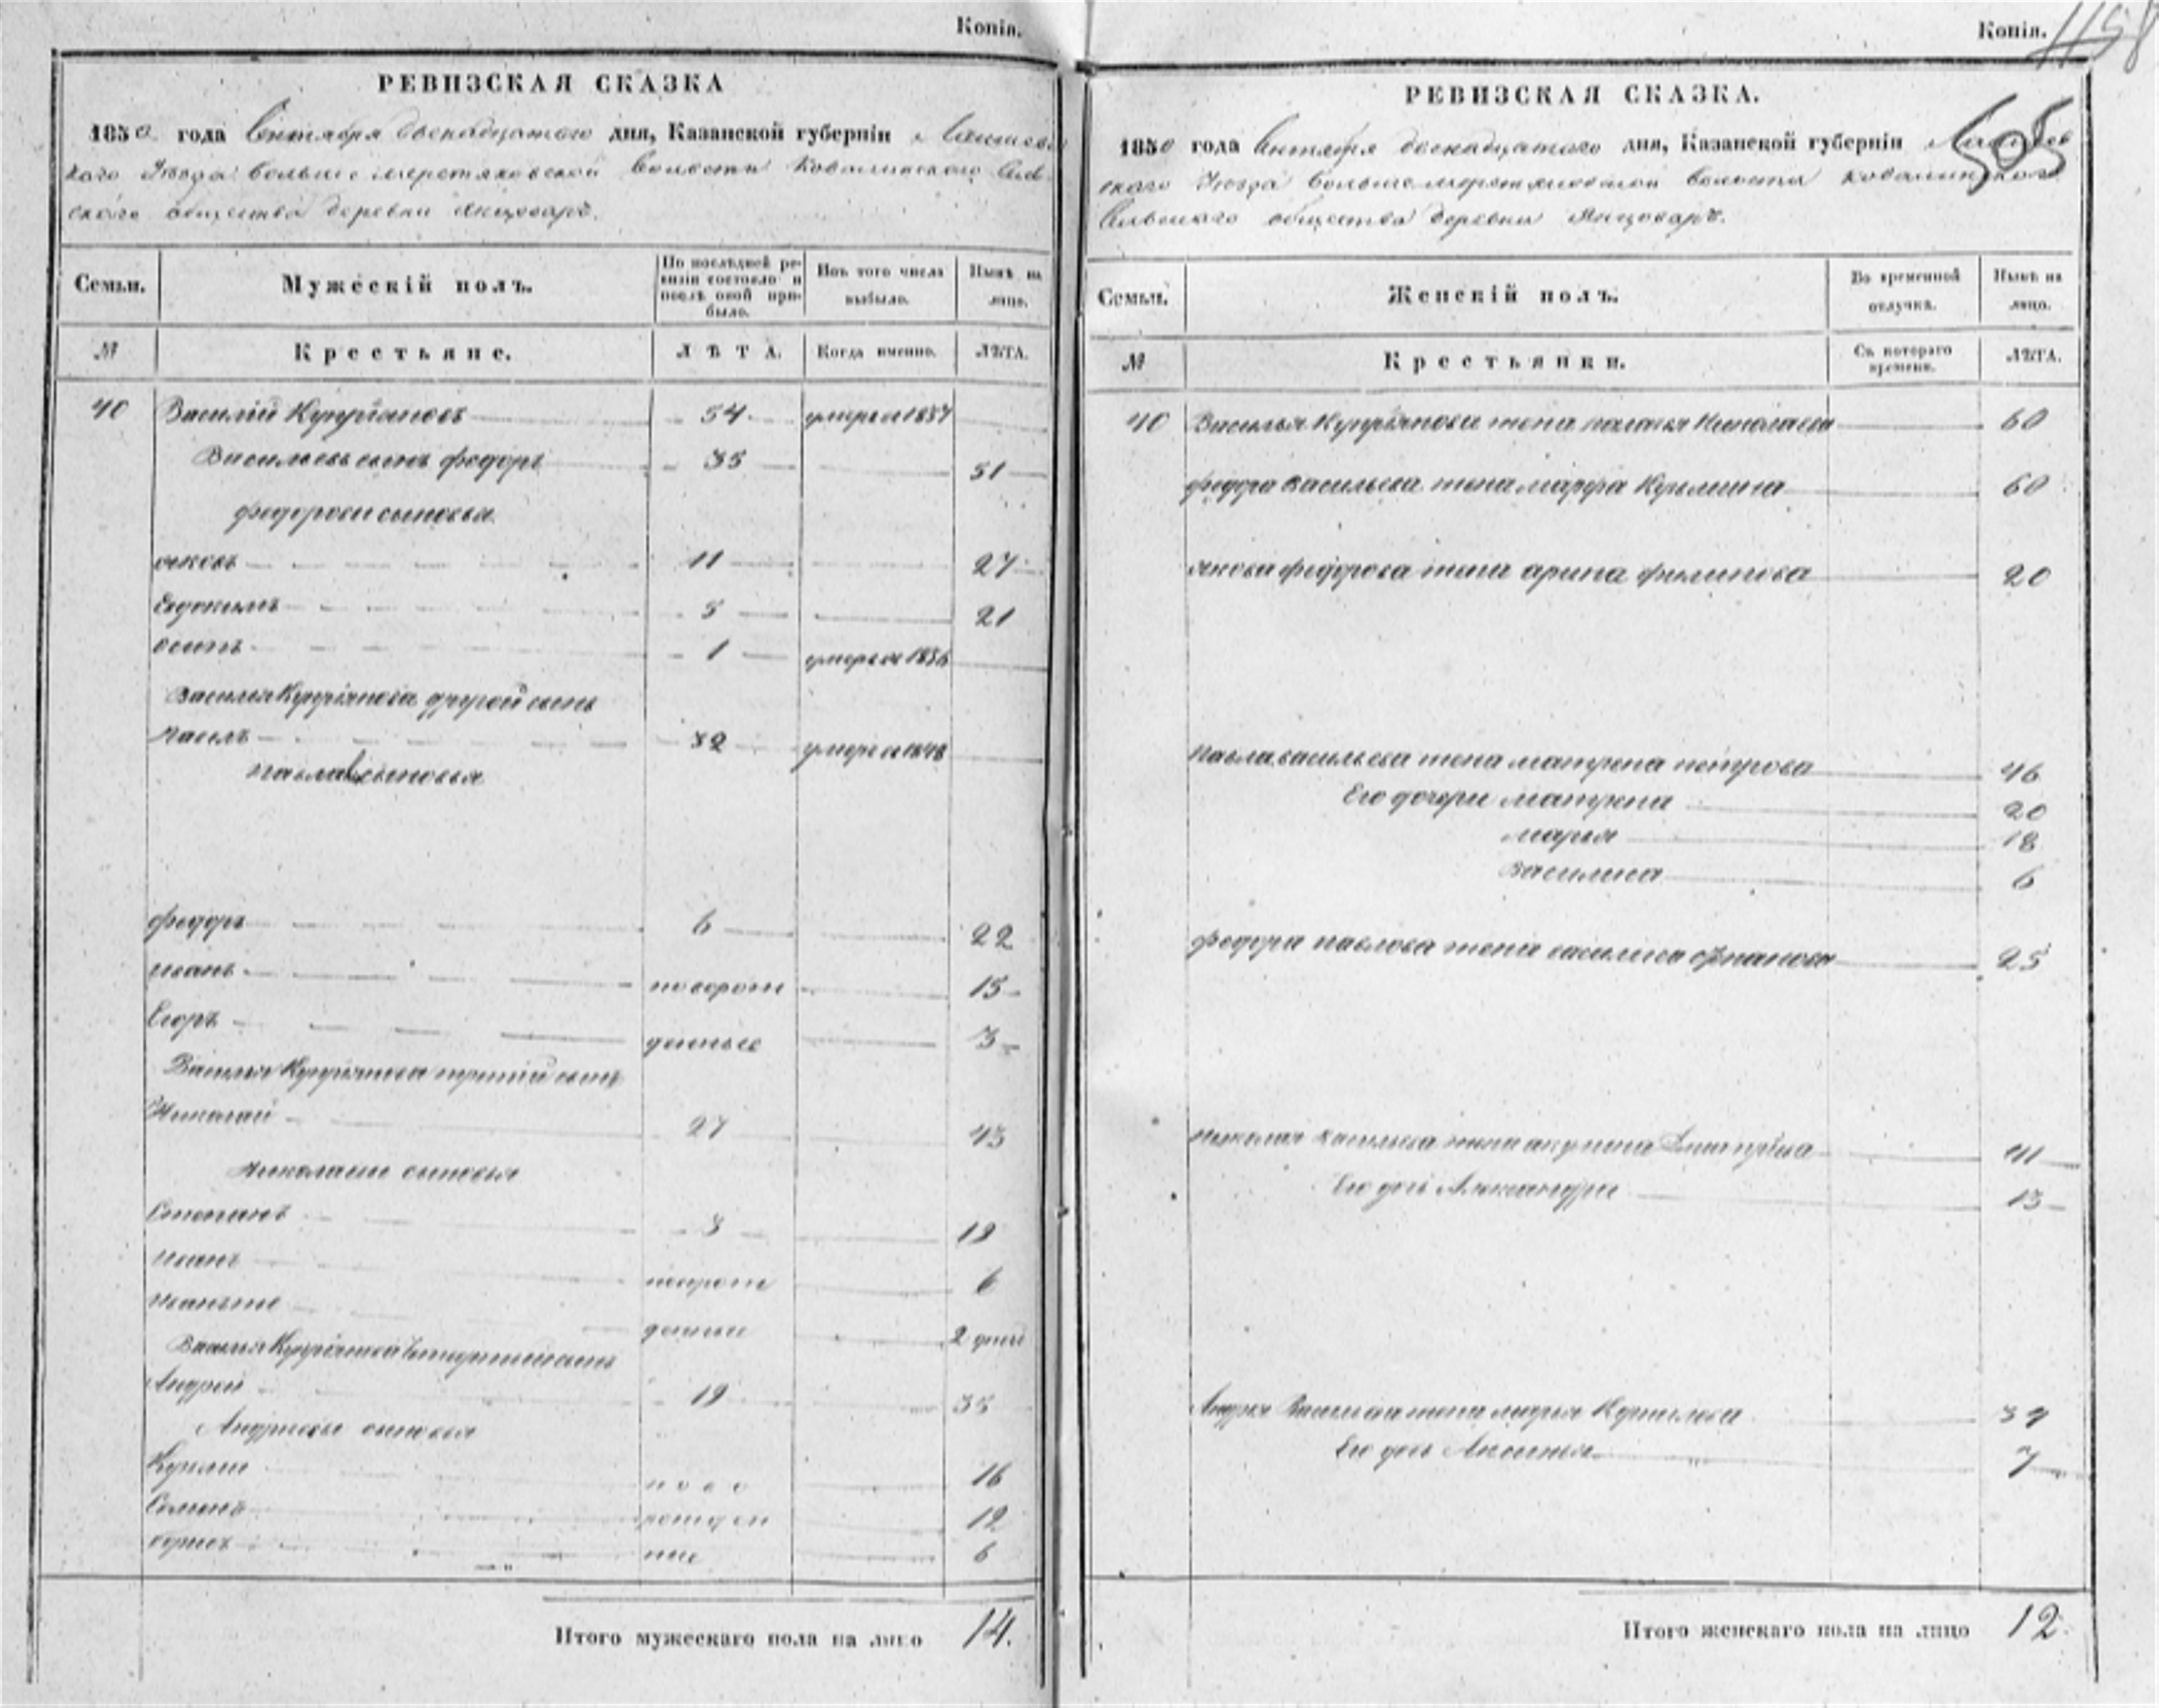 Копія.
РЕВИЗСКАЯ СКАЗКА
1850 года Сентября двенадцатого дня, Казанской губерніи Лаишев
кого Уѣзда Больше меретяковской Волости Ковалинского Сель
ского общества деревни Янцоваръ.
Семьи.
Мужескій полъ.
По послѣдней ре-
визіи состояло и
послѣ оной при-
было.
Изъ того числа
выбыло.
Нынѣ на
лицо.
№
Крестьяне.
ЛѢТА.
Когда именно.
ЛѢТА.
40 Василій Купріановъ 54 умеръ в 1837
Васильевъ сынъ федоръ 35 51
федоровы сыновья
яковъ 11 27
Евдокимъ 5 21
осипъ 1 умеръ в 1836
Василья Купріянова другой сынъ
Павелъ 32 умеръ в 1848
павла сыновья
федоръ 6 22
иванъ новорож 15
Егоръ денные 3
Василья Купріянова третій сынъ
Николай 27 43
Николаевы сыновья
Степанъ 3 19
иванъ новорож 6
денные 2 дни
Василья Купріянова четвертый сынъ
Андрей 19 35
Андреевы сыновья
Кузма ново 16
Семенъ рожден 12
ные 6
Итого мужескаго пола на лицо 14.
Копія. 458
505
РЕВИЗСКАЯ СКАЗКА.
1850 года Сентября двенадцатого дня, Казанской губерніи Лаишев
ского Уѣзда Больше меретяковской Волости Ковалинского
Сельского общества деревни Янцоваръ.
Семьи.
Женскій полъ.
Во временной
отлучкѣ.
Нынѣ на
лицо.
№
Крестьянки.
Съ котораго
времени.
ЛѢТА.
40 Василья Купріянова жена палагья Николаева 60
федора Васильева жена марфа Кузьмина 60
якова федорова жена арина филипова 20
Павла васильева жена матрена петрова 46
Его дочери матрена 20
марья 18
Василиса 6
федора павлова жена василиса 25
николая васильева жена акулина Дмитріева 41
Его дочь Александра 13
Андрея Васильева жена марья Корнилова 37
Его дочь Аксинья 7
Итого женскаго пола на лицо 12